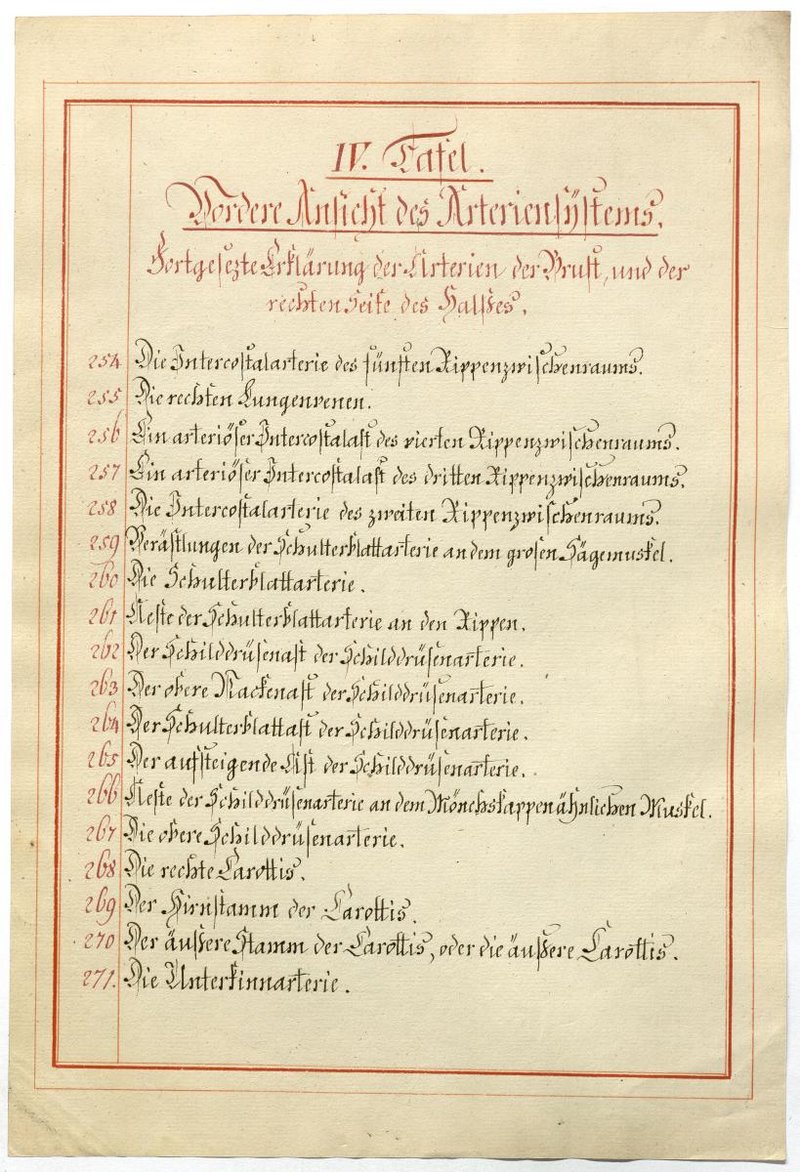 IV. Tafel.
Vordere Ansicht des Arteriensÿstems.
Fortgesezte Erklärung der Arterien der Brust, und der
rechten Seite des Halßes.
254 Die Intercostalarterie des fünften Rippenzwischenraums.
255 Die rechten Lungenvenen.
256 Ein arteriöser Intercostalast des vierten Rippenzwischenraums.
257 Ein arteriöser Intercostalast des dritten Rippenzwischenraums.
258 Die Intercostalarterie des zweiten Rippenzwischenraums.
259 Verästlungen der Schulterblattarterie an dem grosen Sägemuskel.
260 Die Schulterblattarterie.
261 Aeste der Schulterblattarterie an den Rippen.
262 Der Schilddrüsenast der Schilddrüsenarterie.
263 Der obere Nackenast der Schilddrüsenarterie.
264 Der Schulterblattast der Schilddrüsenarterie.
265 Der aufsteigende Ast der Schilddrüsenarterie.
266 Aeste der Schilddrüsenarterie an dem Mönchskappenähnlichen Muskel.
267 Die obere Schilddrüsenarterie.
268 Die rechte Carottis.
269 Der Hirnstamm der Carottis.
270 Der äußere Stamm der Carottis, oder die äußere Carottis.
271. Die Unterkinnarterie.